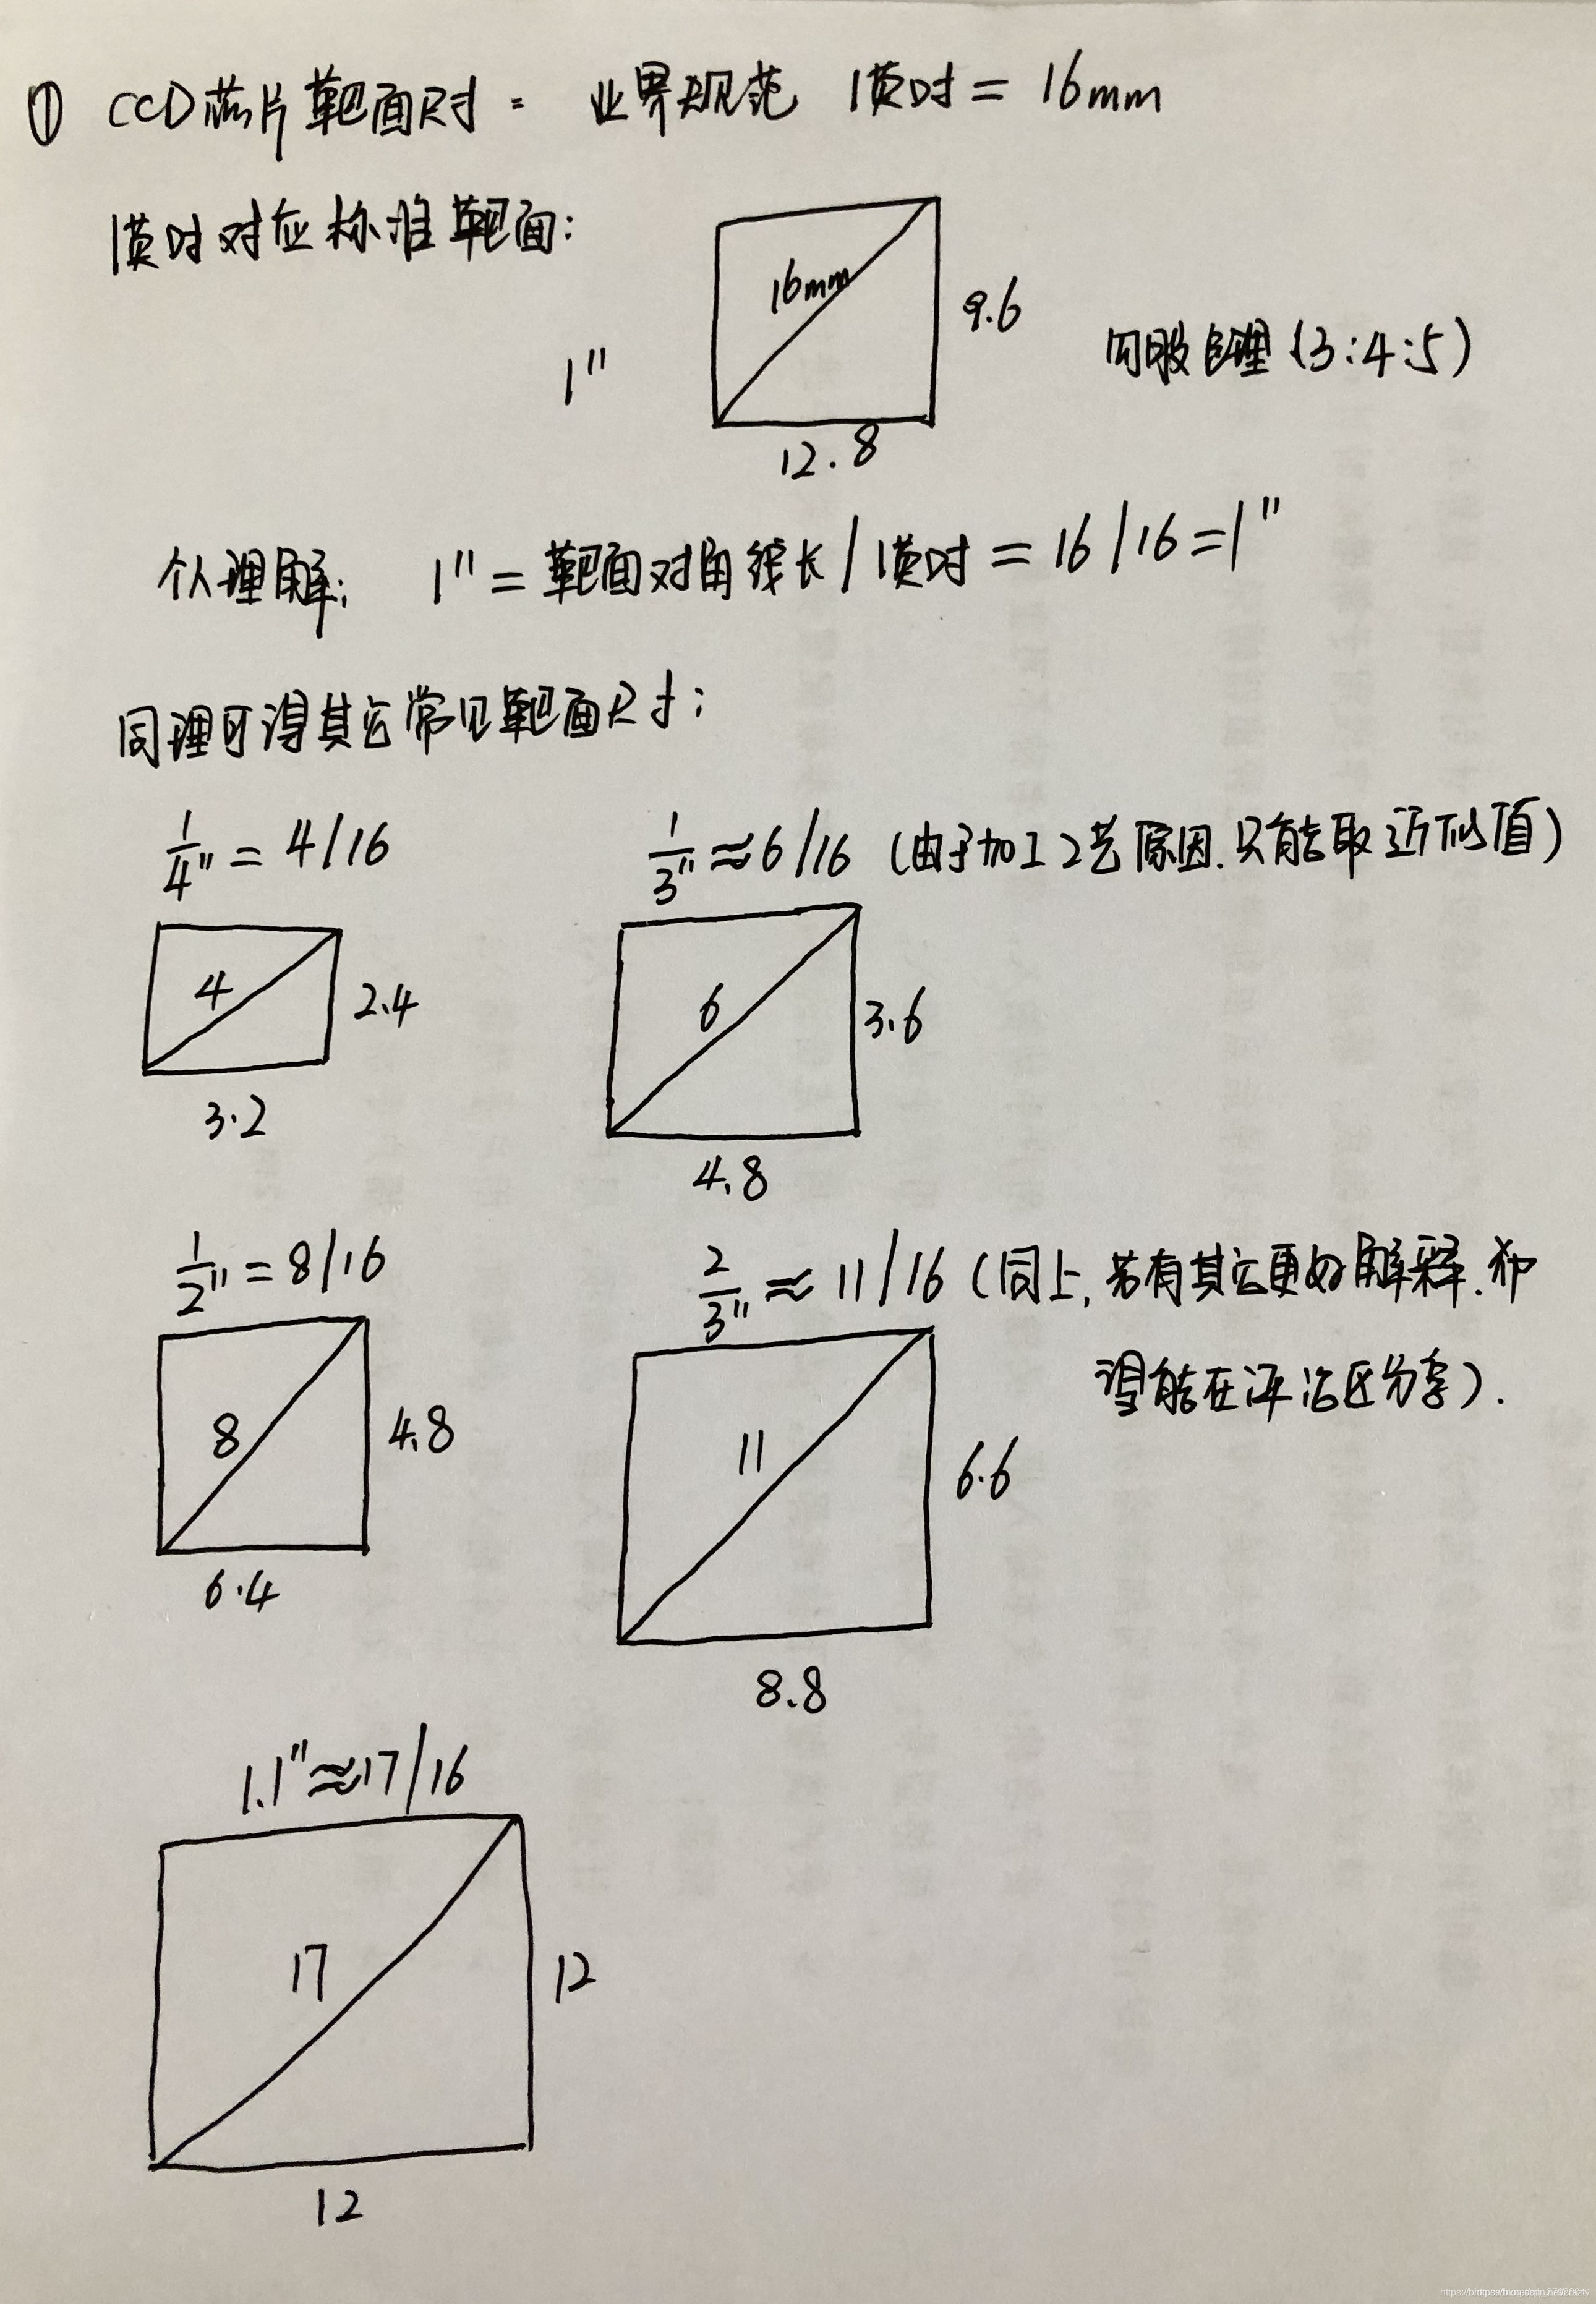 ① CCD芯片靶面尺寸: 业界规范 1英吋 = 16mm
1英吋对应标准靶面:
16mm
9.6
1"
勾股定理(3:4:5)
12.8
个人理解: 1" = 靶面对角线长/1英吋 = 16/16=1"
同理可得其它常见靶面尺寸:
1/4" = 4/16
1/3" ≈ 6/16 (由于加工工艺原因.只能取近似值)
4
2.4
6
3.6
3.2
4.8
1/2" = 8/16
2/3" ≈ 11/16 (同上, 若有其它更好解释.希
望能在评论区分享).
8
4.8
11
6.6
6.4
8.8
1.1"≈17/16
17
12
12